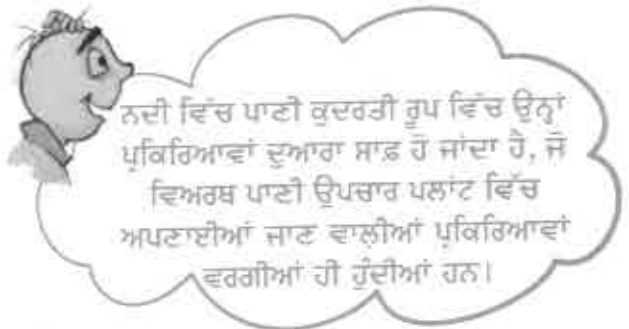 ਨਦੀ ਵਿੱਚ ਪਾਣੀ ਕੁਦਰਤੀ ਰੂਪ ਵਿੱਚ ਉਨ੍ਹਾਂ
ਪ੍ਰਕਿਰਿਆਵਾਂ ਦੁਆਰਾ ਸਾਫ਼ ਹੋ ਜਾਂਦਾ ਹੈ, ਜੋ
ਵਿਅਰਥ ਪਾਣੀ ਉਪਚਾਰ ਪਲਾਂਟ ਵਿੱਚ
ਅਪਣਾਈਆਂ ਜਾਣ ਵਾਲੀਆਂ ਪ੍ਰਕਿਰਿਆਵਾਂ
ਵਰਗੀਆਂ ਹੀ ਹੁੰਦੀਆਂ ਹਨ।